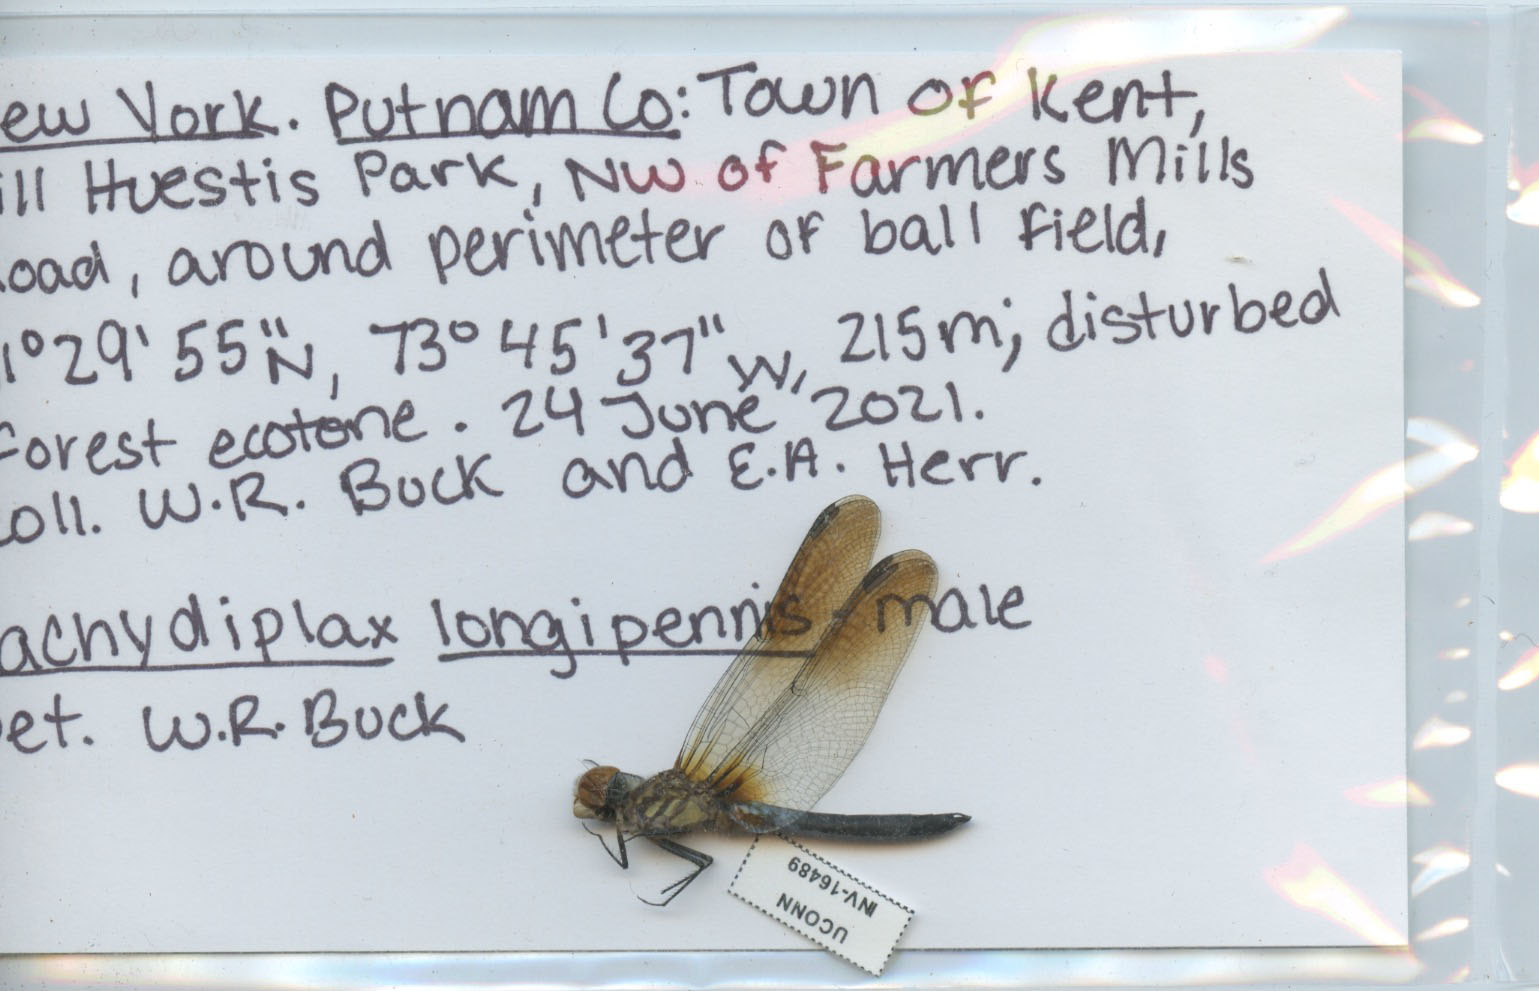 ew York. Putnam Co: Town of Kent,
ill Huestis Park, NW of Farmers Mills
oad, around perimeter of ball field,
1°29'55"N, 73°45'37"W, 215m; disturbed
forest ecotone. 24 June 2021.
coll. W.R. Buck and E.A. Herr.
achydiplax longipennis - male
et. W.R. Buck
UCONN
INV-16489